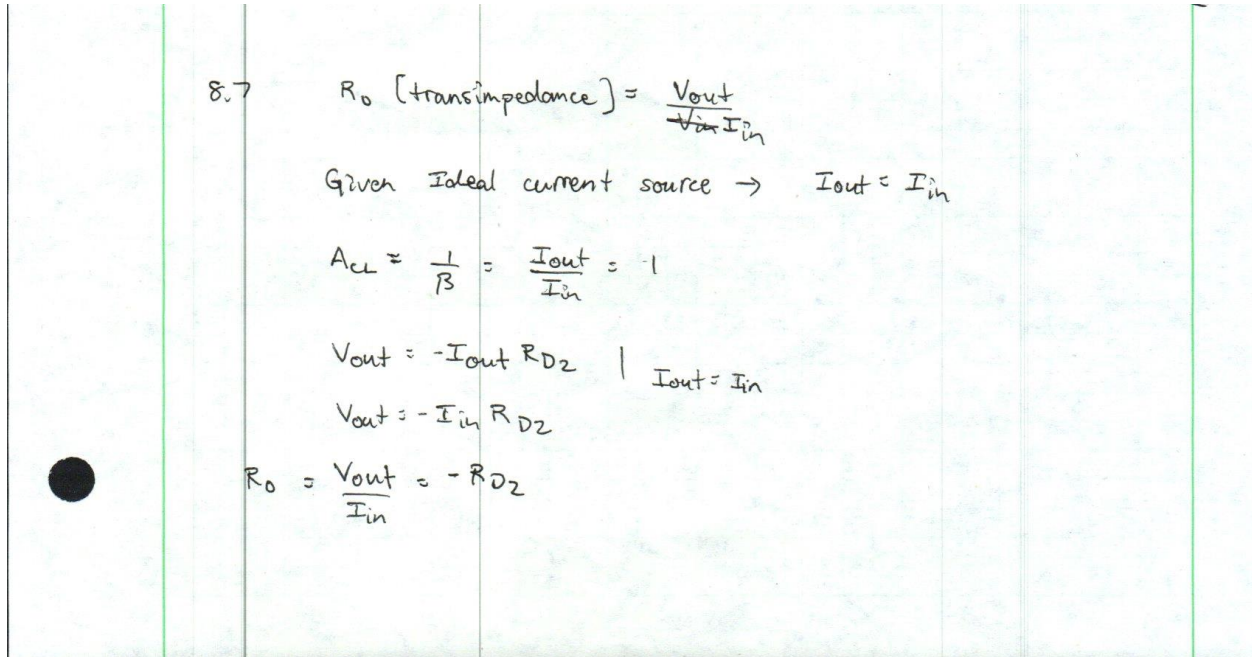 8.7 Ro [transimpedance] = Vout / Iin
Given Ideal current source → Iout = Iin
ACL ≈ 1/β = Iout/Iin = -1
Vout = -Iout RD2 | Iout = Iin
Vout = -Iin RD2
Ro = Vout/Iin = -RD2